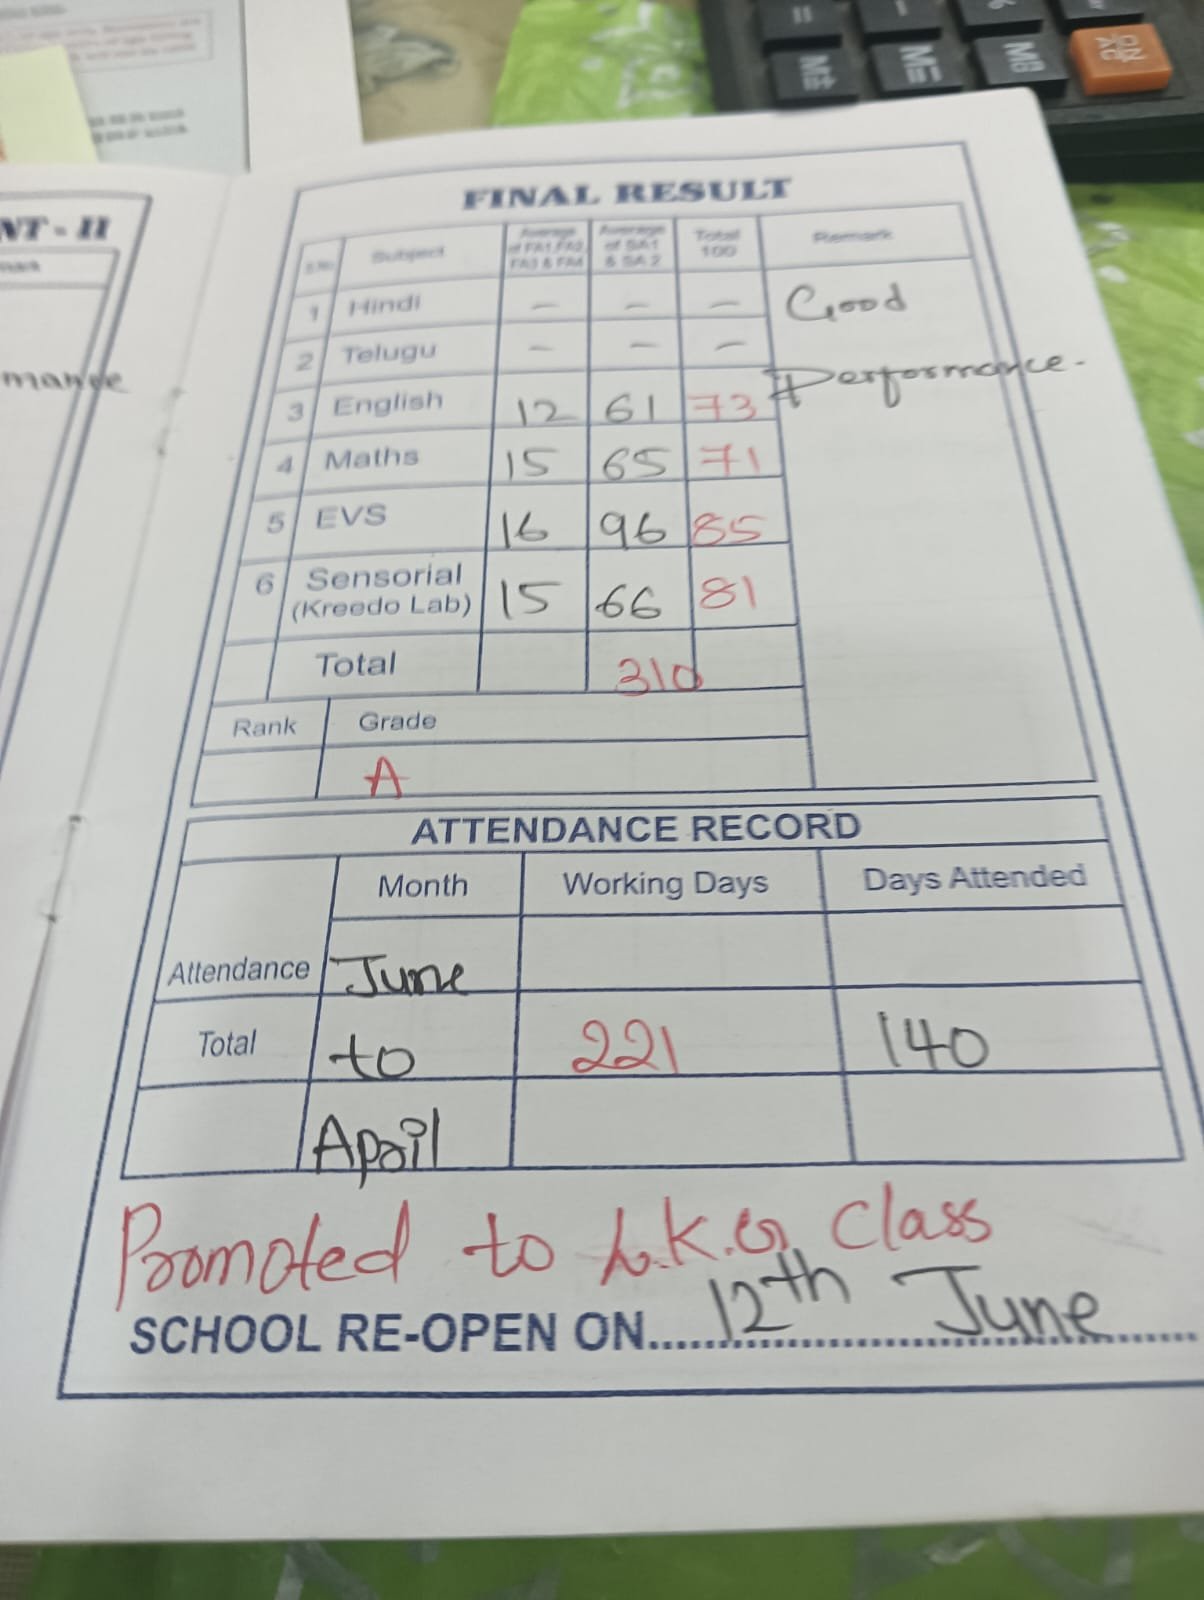 NT - II
mance
FINAL RESULT
S.No Subject Average of FA1,FA2, FA3 & FA4 Average of SA1 & SA 2 Total 100 Remark
1 Hindi – – – Good
2 Telugu – – – Performance.
3 English 12 61 73
4 Maths 15 65 71
5 EVS 16 96 85
6 Sensorial (Kreedo Lab) 15 66 81
Total 310
Rank Grade
A
ATTENDANCE RECORD
Month Working Days Days Attended
Attendance June
Total to 221 140
April
Promoted to L.K.G. Class
SCHOOL RE-OPEN ON..... 12th June
= -
M± M= MB ON AC